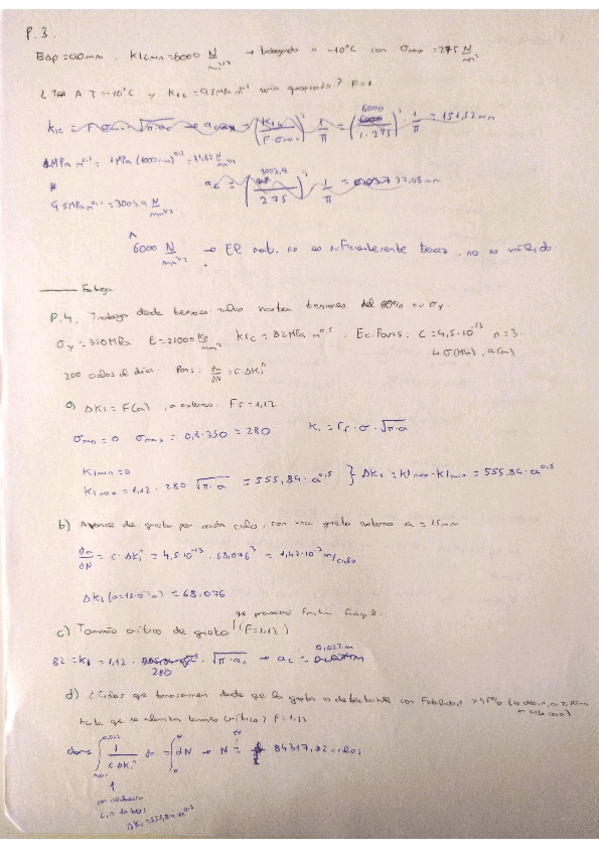 P.3.
Esp = 60mm . KIcmin = 6000 N/mm^3/2 → trabajando a -10°C con σmax = 275 N/mm²
¿ A T = -10°C y KIc = 95MPa m^0.5 sería apropiado? F=1
KIc = F σmax √π·a → a = (KIc / F·σmax)² 1/π = (6000 / 1·275)² 1/π = 151,52 mm
1MPa m^0.5 = 1MPa (1000mm)^0.5 = 31,62 N/mm^3/2
ac = (3003,9 / 275)² 1/π = 37,98 mm
95MPa m^0.5 = 3003,9 N/mm^3/2
^
6000 N/mm^3/2 → El mat. no es suficientemente tenaz, no es válido.
Fatiga
P.4. Trabaja desde tensión nula hasta tensiones del 80% su σy.
σy = 350MPa E = 21000 Kp/mm² KIc = 82MPa m^0.5 . Ec. Paris: C = 4,5·10^-13 n = 3.
σ(MPa), a(m)
200 ciclos al día. Paris: da/dN = C·ΔKI^n
a) ΔKI = F(a), a externa. FF = 1,12
σmin = 0 σmax = 0,8·350 = 280 KI = FF·σ·√π·a
KImin = 0
KImax = 1,12 · 280 √π·a = 555,84·a^0,5 } ΔKI = KImax - KImin = 555,84·a^0,5
b) Avance de grieta por cada ciclo, con una grieta externa a = 15mm
da/dN = C·ΔKI^n = 4,5·10^-13 · 68,076³ = 1,42·10^-7 m/ciclo
ΔKI (a=15·10^-3 m) = 68,076
c) Tamaño crítico de grieta (F=1,12) que provocará fractura frágil.
82 = KI = 1,12 · 280 · √π·ac → ac = 0,022m
d) ¿Ciclos que transcurren desde que la grieta es detectable con fiabilidad >95%
hasta que se alcanza tamaño crítico? F=1,12
∫ 1/C·ΔKI^n da = ∫ dN → N = 84317,82 ciclos
ΔKI = 555,84·a^0,5